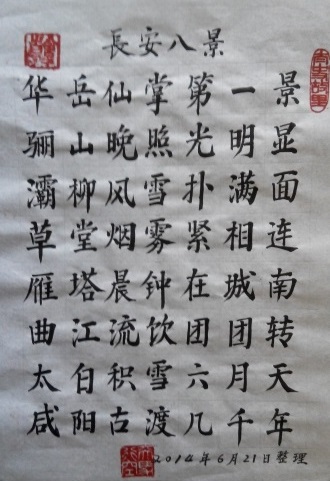 長安八景
华岳仙掌第一景
骊山晚照光明显
灞柳风雪扑满面
草堂烟雾紧相连
雁塔晨钟在城南
曲江流饮团团转
太白积雪六月天
咸阳古渡几千年
2014年6月21日整理